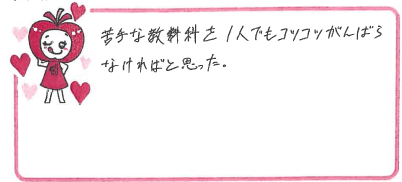 苦手な教料科を1人でもコツコツがんばら
なければと思った。